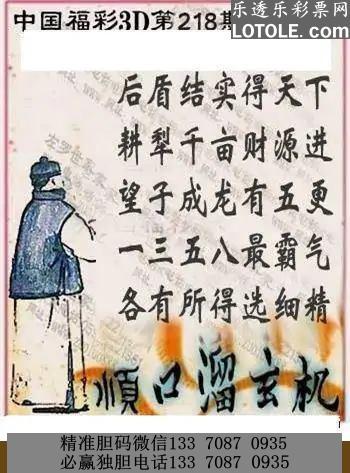 乐透乐彩票网
中国福彩3D第218期
LOTOLE.COM
后盾结实得天下
耕犁千亩财源进
望子成龙有五更
一三五八最霸气
各有所得选细精
順口溜玄机
精准胆码微信133 7087 0935
必赢独胆电话133 7087 0935